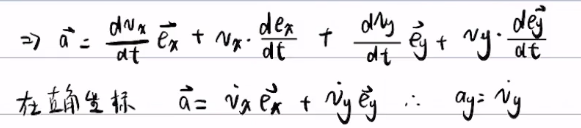 ⇒ a⃗ = dvx/dt e⃗x + vx · dex/dt + dvy/dt e⃗y + vy · de⃗y/dt
在直角坐标 a⃗ = v̇x e⃗x + v̇y e⃗y ∴ ay = v̇y